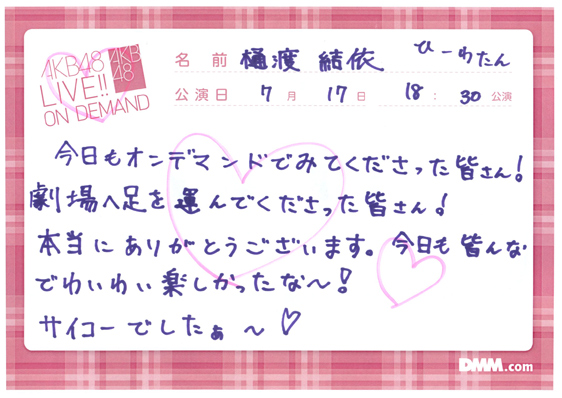 AKB48
LIVE!!
ON DEMAND
AKB
48
名前 樋渡 結依 ひーわたん
公演日 7月 17日 18:30 公演
今日もオンデマンドでみてくださった皆さん!
劇場へ足を運んでくださった皆さん!
本当にありがとうございます。今日も皆んな
でわいわい楽しかったな〜!
サイコーでしたぁ〜♡
DMM.com